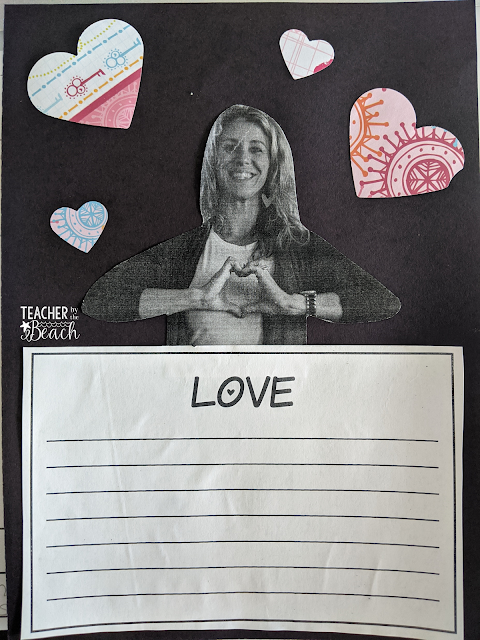 TEACHER by the
Beach
LOVE